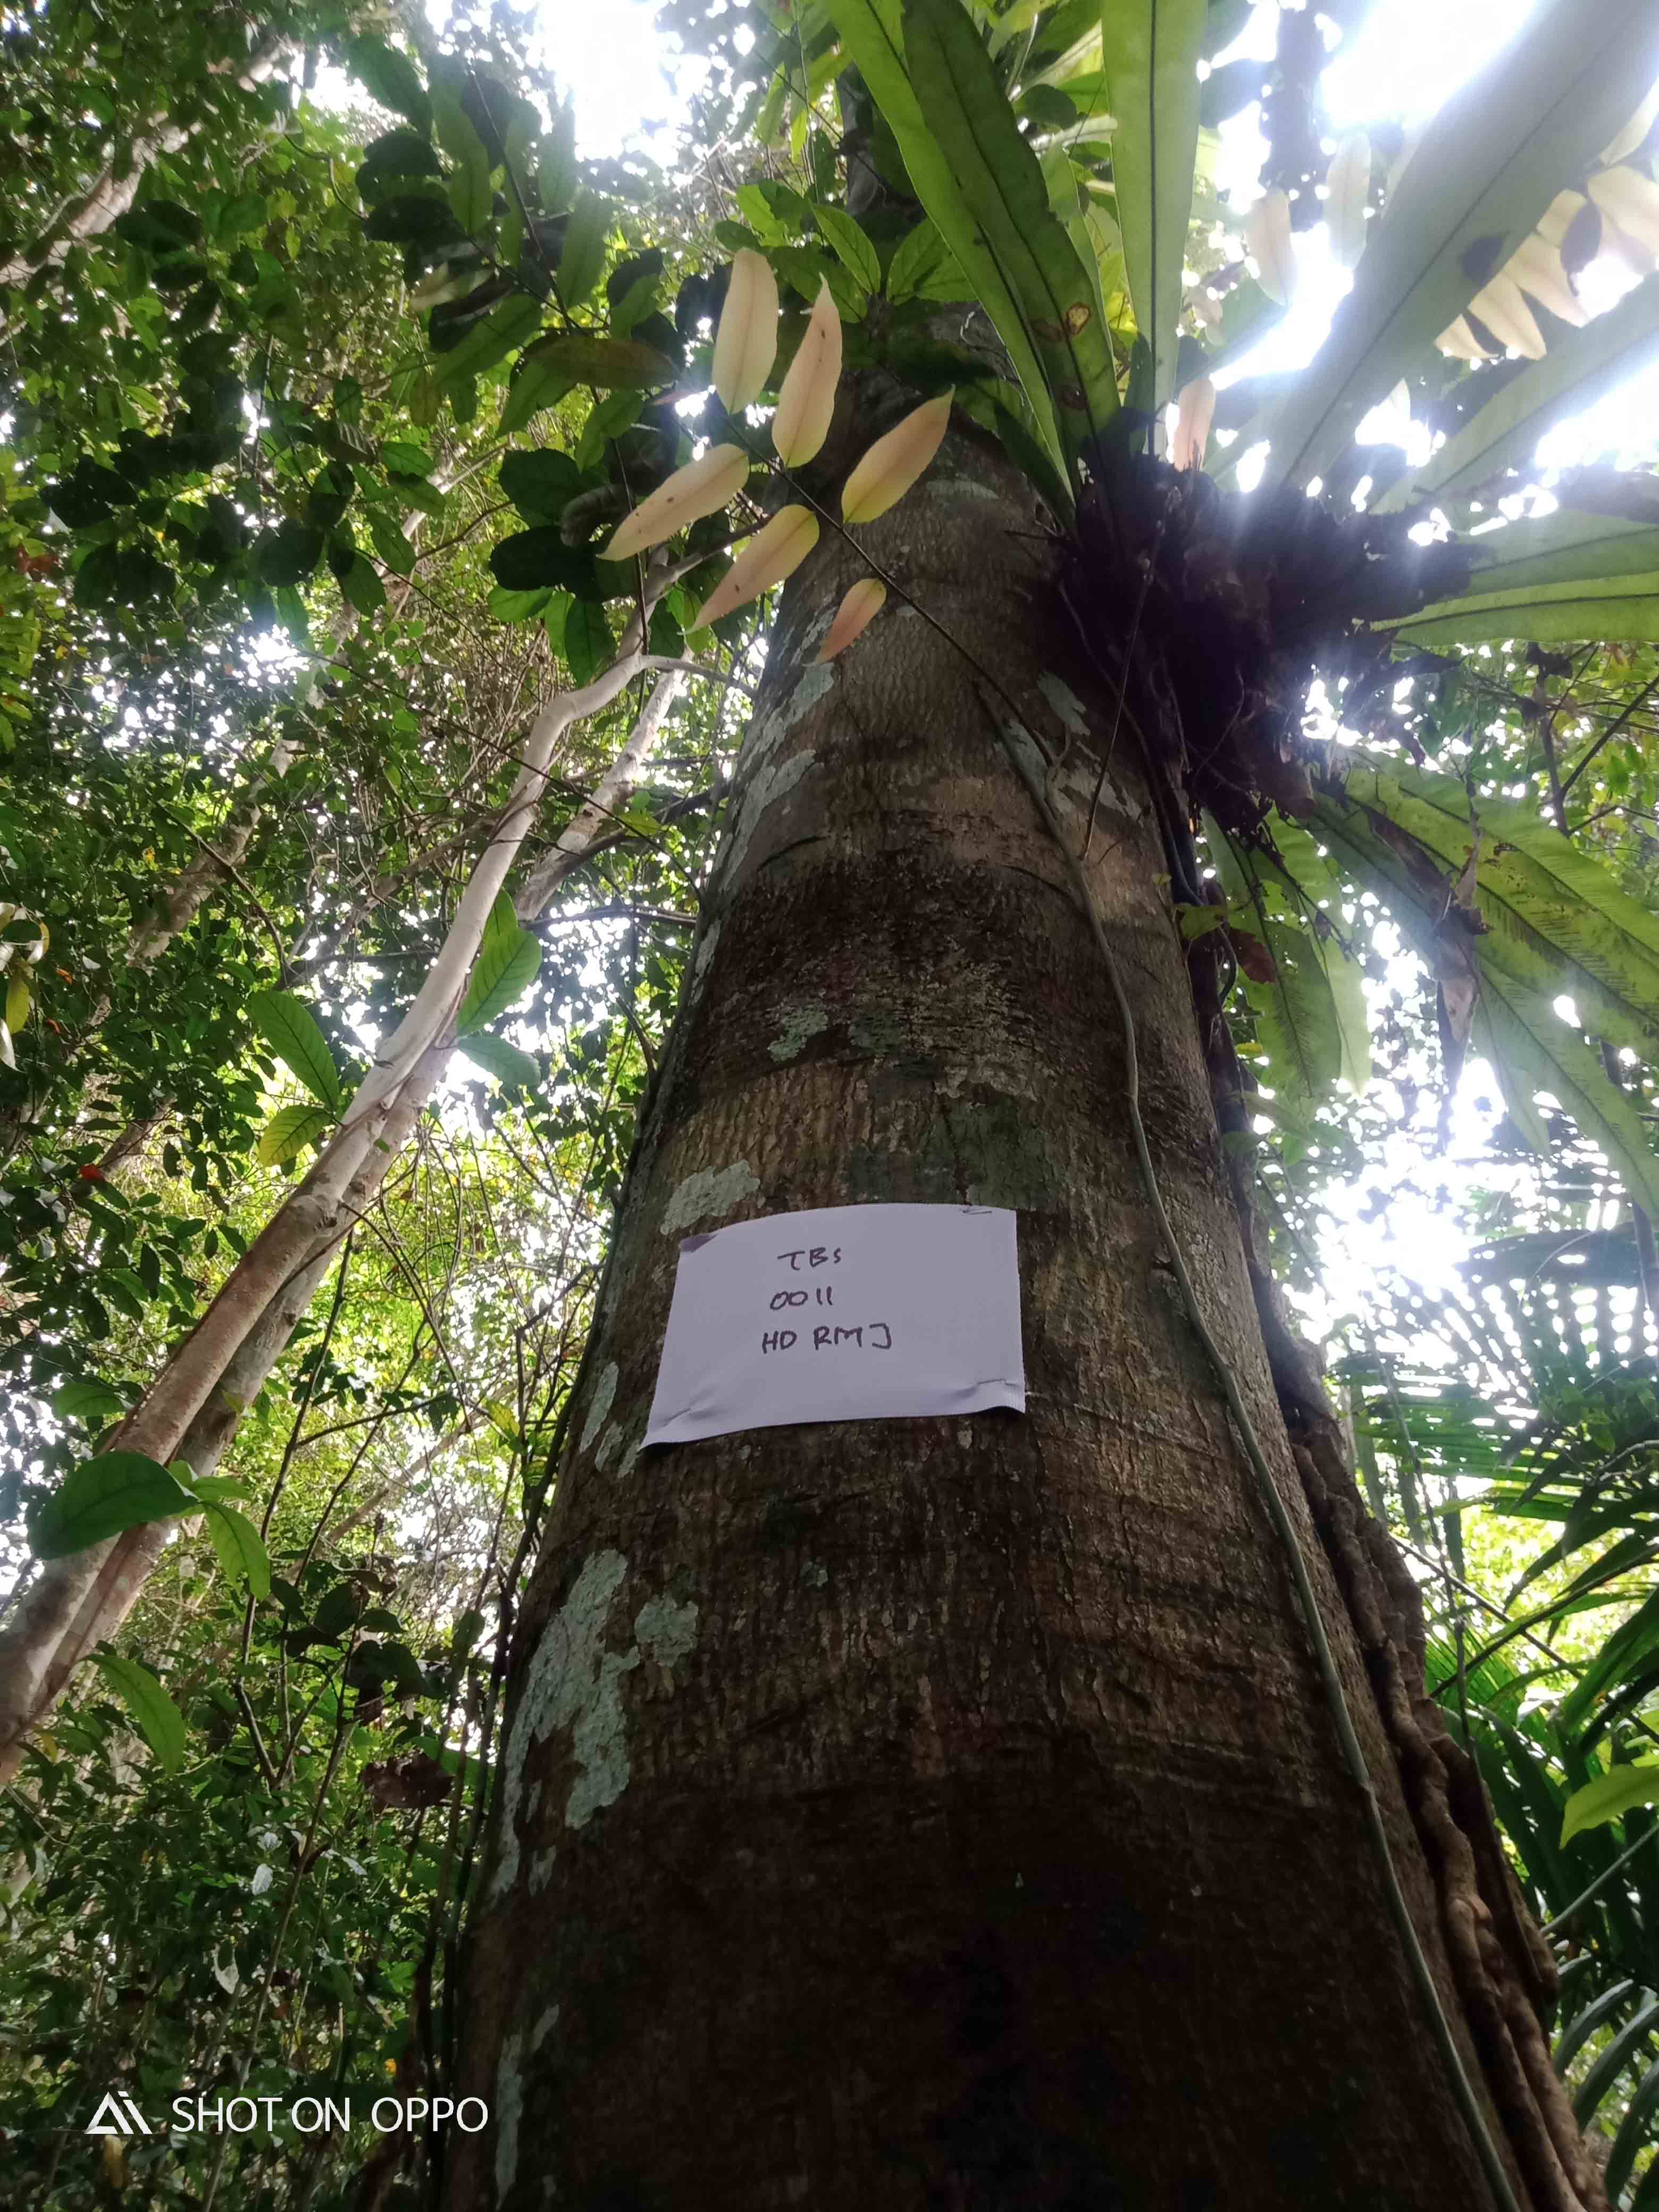 TBs
0011
HD RMJ
SHOT ON OPPO